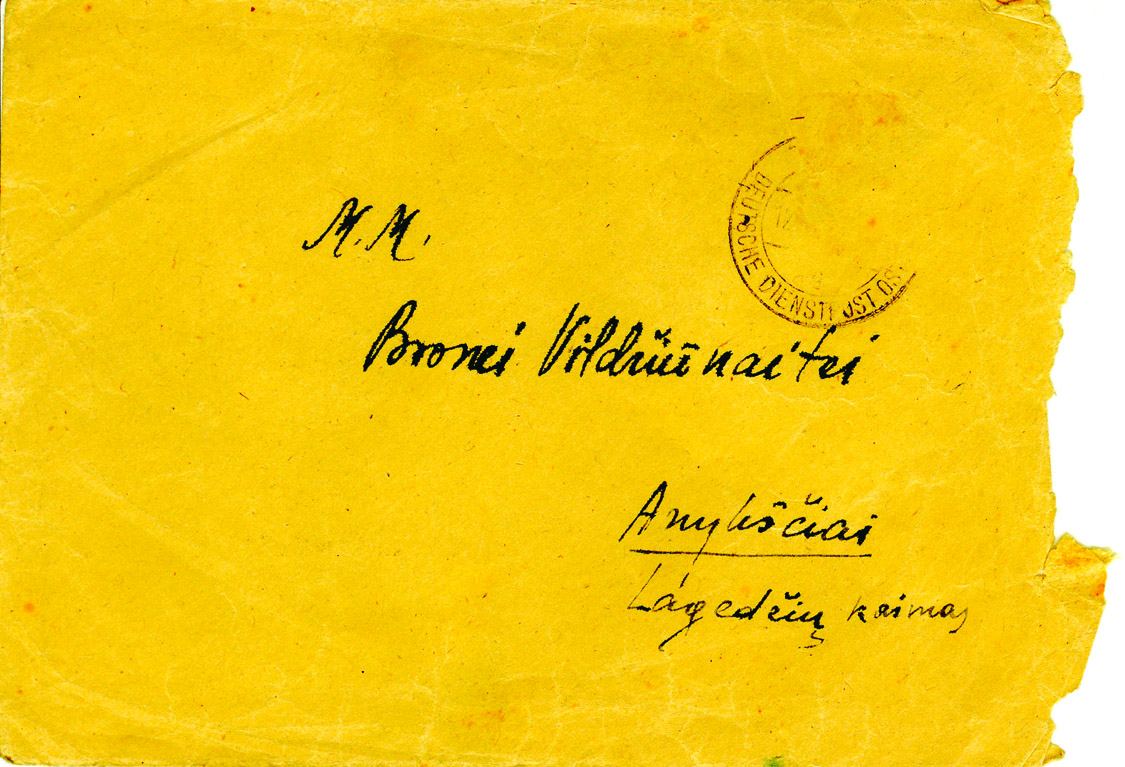 DEUTSCHE DIENSTPOST OST
M. M.
Bronei Vildžiūnaitei
Anykščiai
Lagedžių kaimas